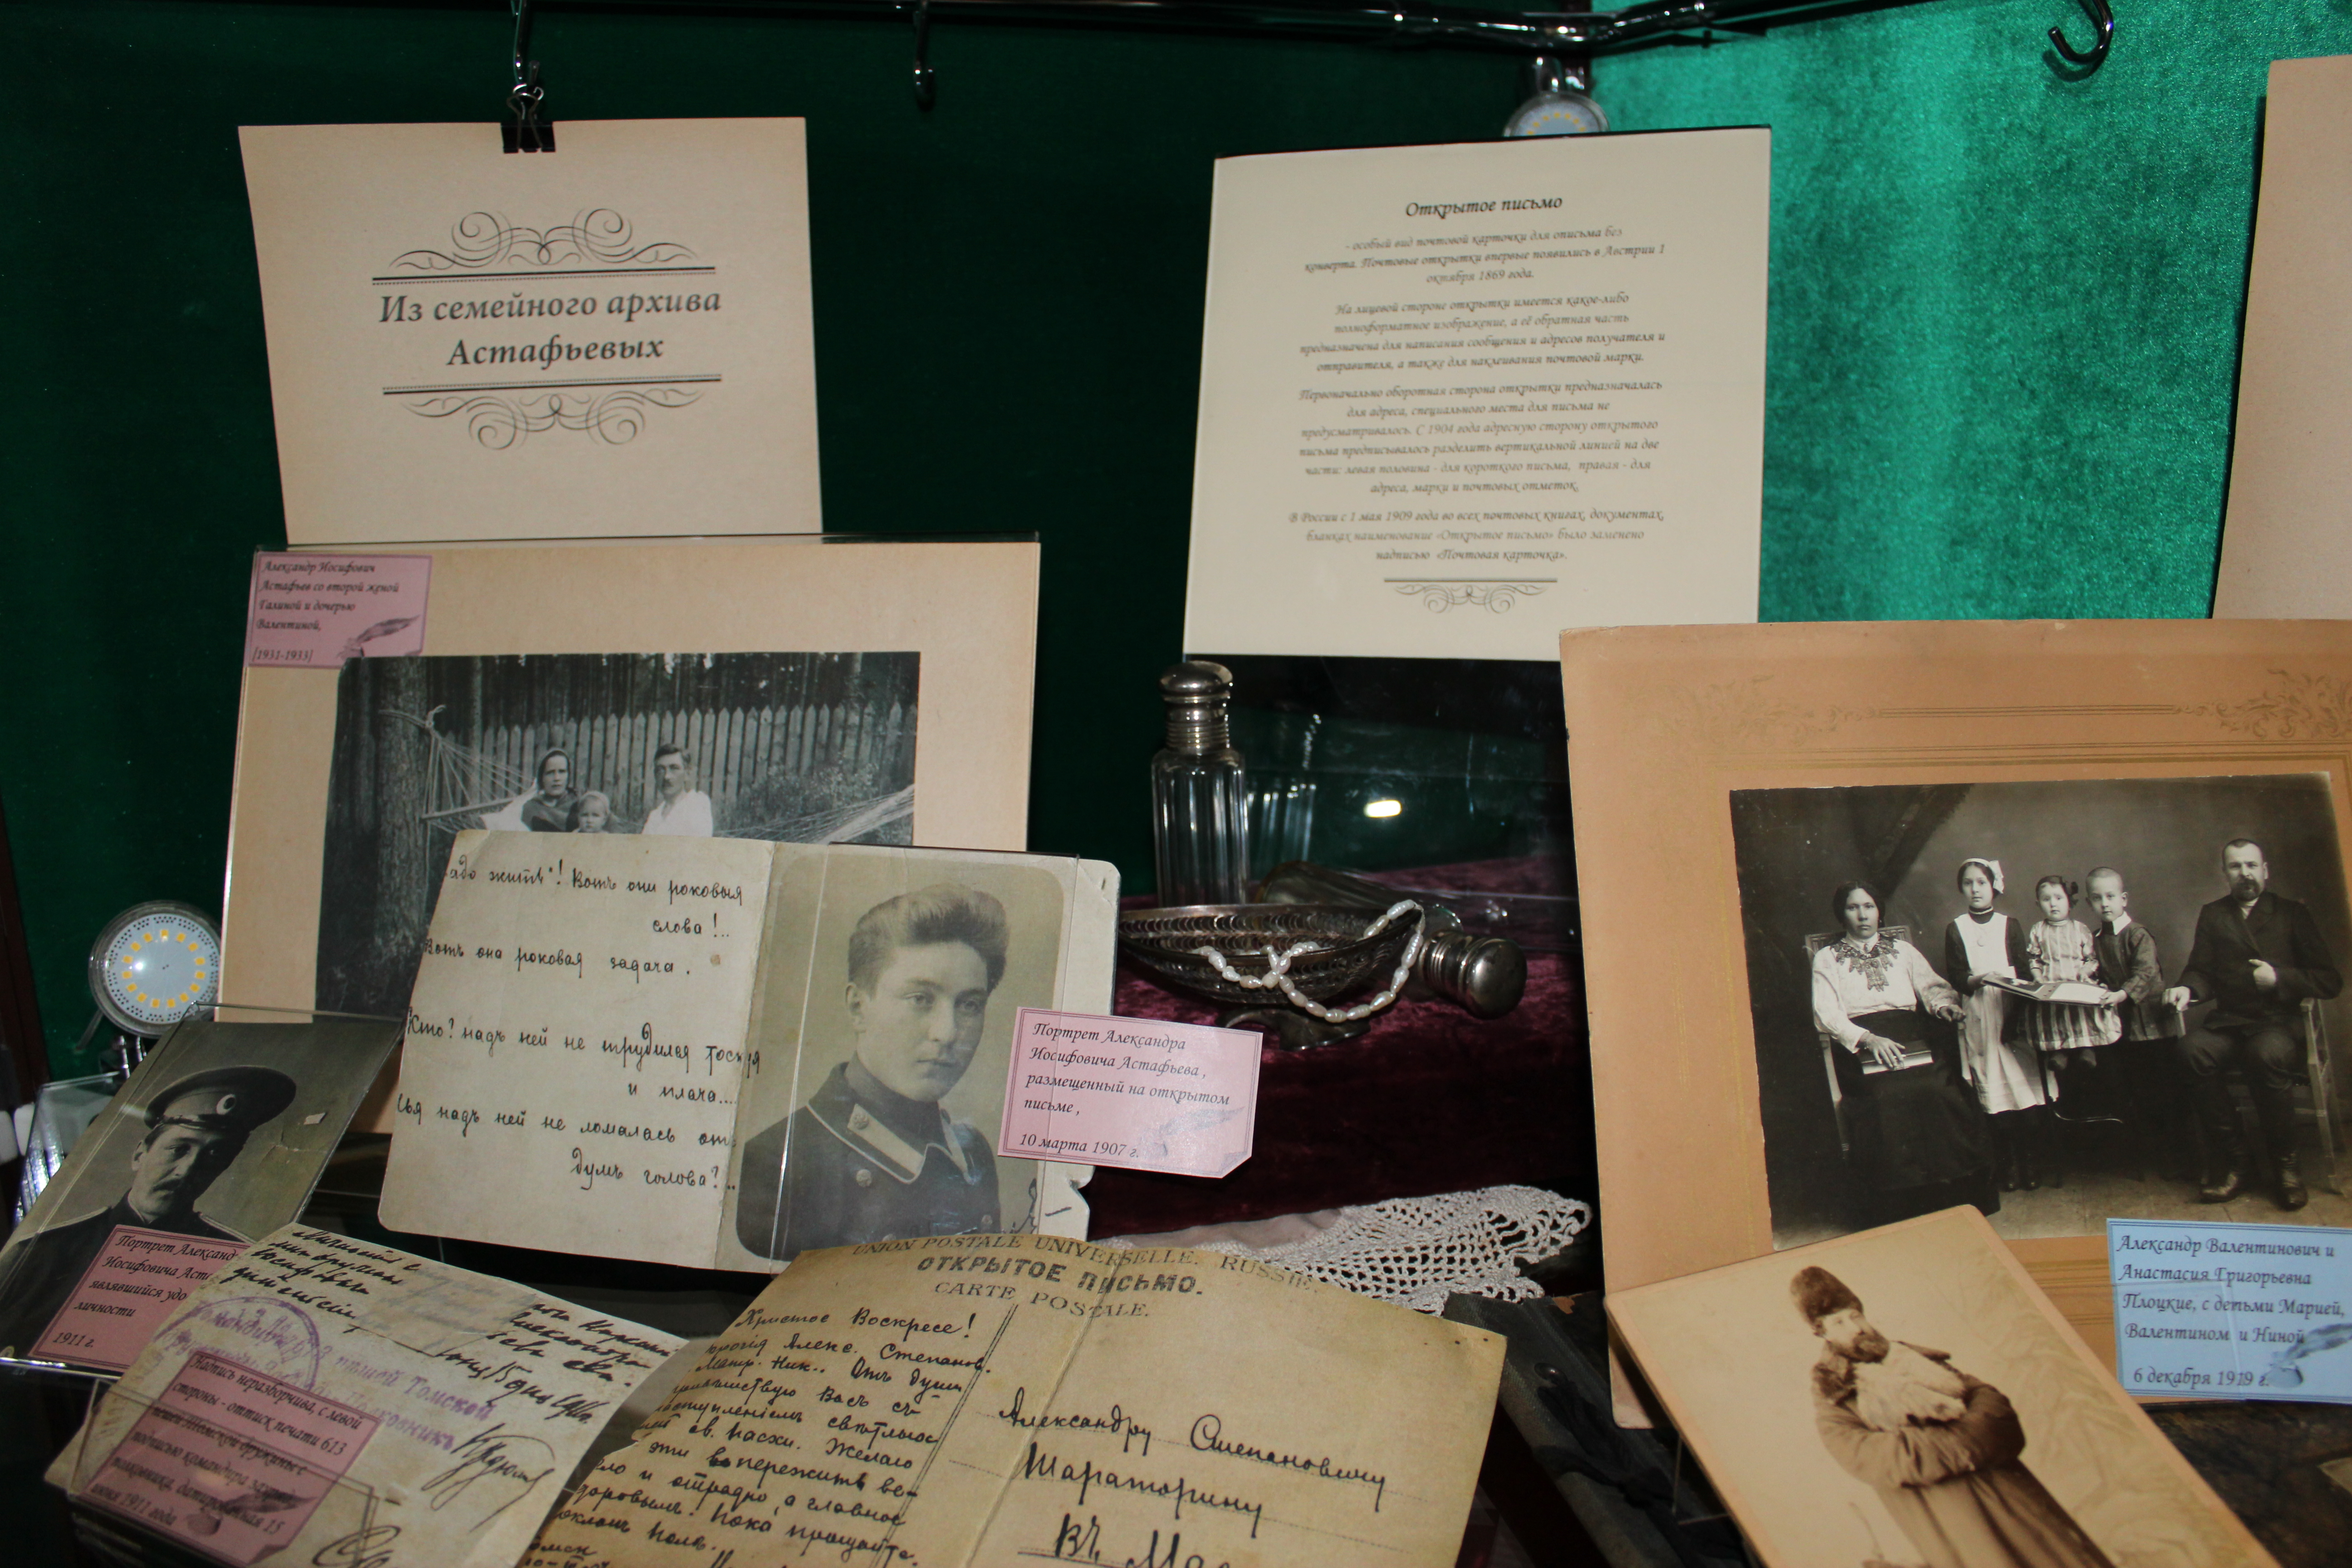 Из семейного архива
Астафьевых
Открытое письмо
- особый вид почтовой карточки для описьма без
конверта. Почтовые открытки впервые появились в Австрии 1
октября 1869 года.
На лицевой стороне открытки имеется какое-либо
полноформатное изображение, а её обратная часть
предназначена для написания сообщения и адресов получателя и
отправителя, а также для наклеивания почтовой марки.
Первоначально оборотная сторона открытки предназначалась
для адреса, специального места для письма не
предусматривалось. С 1904 года адресную сторону открытого
письма предписывалось разделить вертикальной линией на две
части: левая половина - для короткого письма, правая - для
адреса, марки и почтовых отметок.
В России с 1 мая 1909 года во всех почтовых книгах, документах,
бланках наименование «Открытое письмо» было заменено
надписью «Почтовая карточка».
Александр Иосифович
Астафьев со второй женой
Галиной и дочерью
Валентиной,
[1931-1933]
адо жить"! Вотъ они роковыя
слова!..
Вотъ она роковая задача.
Кто? надъ ней не трудился тоскуя
и плача....
чья надъ ней не ломалась отъ
думъ голова?..
Портрет Александра
Иосифовича Астафьева,
размещенный на открытом
письме,
10 марта 1907 г.
Портрет Александ
Иосифовича Аст
являвшийся удо
личности
1911 г.
613 пешей Томской
Надпись неразборчива, с левой
стороны - оттиск печати 613
пешей Томской дружины с
подписью командира
полковника, датированная 15
июня 1911 года
UNION POSTALE UNIVERSELLE. RUSSIE.
ОТКРЫТОЕ ПИСЬМО.
CARTE POSTALE.
Христос Воскресе!
Алекс. Степанов.
Ник.. Отъ души
Васъ съ
наступленіемъ свѣтлаго
св. Пасхи. Желаю
эти пережить ве-
ло и отрадно, а главное
здоровымъ! Пока прощайте.
Александру Степановичу
Шараторину
Въ
Александр Валентинович и
Анастасия Григорьевна
Плоцкие, с детьми Марией,
Валентином и Ниной
6 декабря 1919 г.